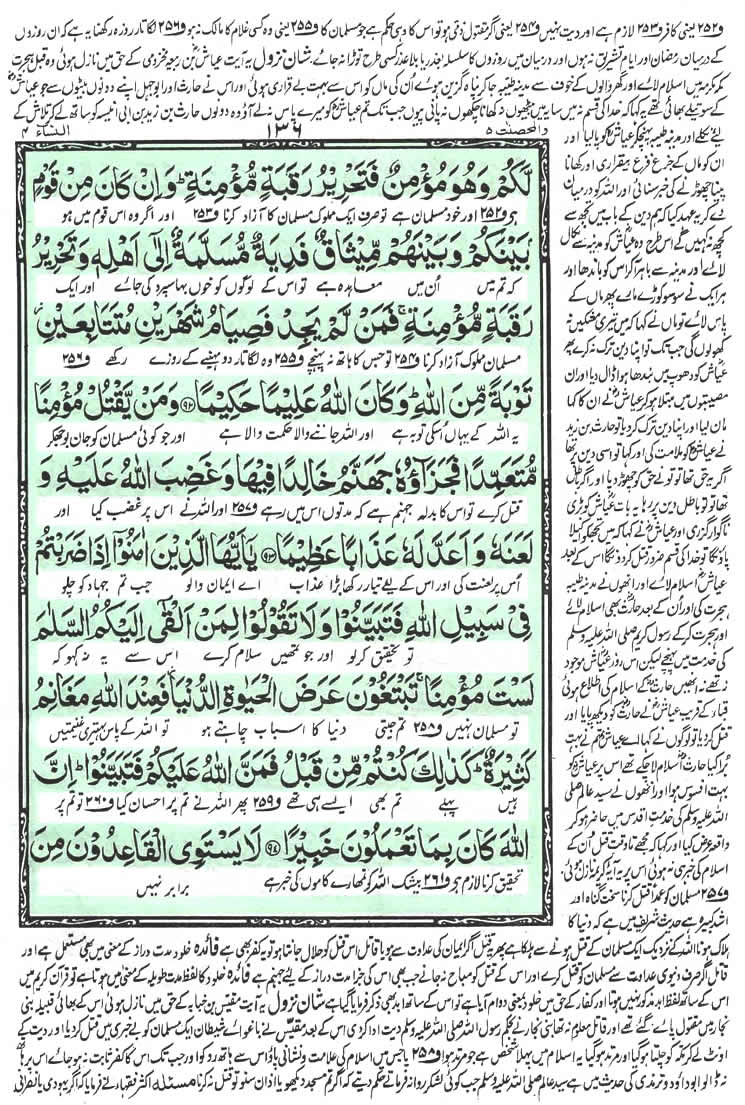 و۲۵۲ یعنی کافر و۲۵۳ لازم ہے اور دیت نہیں و۲۵۴ یعنی اگر مقتول ذمی ہو تو اس کا وہی حکم ہے جو مسلمان کا و۲۵۵ یعنی وہ کسی غلام کا مالک نہ ہو و۲۵۶ لگاتار روزہ رکھنا یہ ہے کہ ان روزوں
کے درمیان رمضان اور ایام تشریق نہ ہوں اور درمیان میں روزوں کا سلسلہ بعذر یا بلا عذر کسی طرح توڑا نہ جائے۔ شان نزول یہ آیت عیاش بن ربیعہ مخزومی کے حق میں نازل ہوئی وہ قبل ہجرت
مکہ مکرمہ میں اسلام لائے اور گھر والوں کے خوف سے مدینہ طیبہ جا کر پناہ گزین ہوئے ان کی ماں کو اس سے بہت بے قراری ہوئی اور اس نے حارث اور ابوجہل اپنے دونوں بیٹوں سے جو عیاش
کے سوتیلے بھائی تھے یہ کہا کہ خدا کی قسم نہ میں سایہ میں بیٹھوں نہ کھانا چکھوں نہ پانی پیوں جب تک تم عیاش کو میرے پاس نہ لے آؤ وہ دونوں حارث بن زید بن ابی انیسہ کو ساتھ لے کر تلاش کے
والمحصنت ۵
۱۳۶
النساء ۴
لَّكُمْ وَهُوَ مُؤْمِنٌ فَتَحْرِيرُ رَقَبَةٍ مُّؤْمِنَةٍ ؕ وَاِنْ كَانَ مِنْ قَوْمٍۭ
ہے و۲۵۲ اور خود مسلمان ہے تو صرف ایک مملوک مسلمان کا آزاد کرنا و۲۵۳ اور اگر وہ اس قوم میں ہو
بَيْنَكُمْ وَبَيْنَهُمْ مِّيْثَاقٌ فَدِيَةٌ مُّسَلَّمَةٌ اِلٰٓى اَهْلِهٖ وَتَحْرِيْرُ
کہ تم میں ان میں معاہدہ ہے تو اس کے لوگوں کو خوں بہا سپرد کی جائے اور ایک
رَقَبَةٍ مُّؤْمِنَةٍ ۚ فَمَنْ لَّمْ يَجِدْ فَصِيَامُ شَهْرَيْنِ مُتَتَابِعَيْنِ
مسلمان مملوک آزاد کرنا و۲۵۴ تو جس کا ہاتھ نہ پہنچے و۲۵۵ وہ لگاتار دو مہینے کے روزے رکھے و۲۵۶
تَوْبَةً مِّنَ اللّٰهِ ؕ وَكَانَ اللّٰهُ عَلِيْمًا حَكِيْمًا ﴿۹۲﴾ وَمَنْ يَّقْتُلْ مُؤْمِنًا
یہ اللہ کے یہاں اس کی توبہ ہے اور اللہ جاننے والا حکمت والا ہے اور جو کوئی مسلمان کو جان بوجھ کر
مُّتَعَمِّدًا فَجَزَآؤُهٗ جَهَنَّمُ خَالِدًا فِيْهَا وَغَضِبَ اللّٰهُ عَلَيْهِ وَ
قتل کرے تو اس کا بدلہ جہنم ہے کہ مدتوں اس میں رہے و۲۵۷ اور اللہ نے اس پر غضب کیا اور
لَعَنَهٗ وَاَعَدَّ لَهٗ عَذَابًا عَظِيْمًا ﴿۹۳﴾ يٰۤاَيُّهَا الَّذِيْنَ اٰمَنُوْۤا اِذَا ضَرَبْتُمْ
اس پر لعنت کی اور اس کے لیے تیار رکھا بڑا عذاب اے ایمان والو جب تم جہاد کو چلو
فِيْ سَبِيْلِ اللّٰهِ فَتَبَيَّنُوْا وَلَا تَقُوْلُوْا لِمَنْ اَلْقٰۤى اِلَيْكُمُ السَّلٰمَ
تو تحقیق کرلو اور جو تمہیں سلام کرے اس سے یہ نہ کہو کہ
لَسْتَ مُؤْمِنًا ۚ تَبْتَغُوْنَ عَرَضَ الْحَيٰوةِ الدُّنْيَا ؗ فَعِنْدَ اللّٰهِ مَغَانِمُ
تو مسلمان نہیں و۲۵۸ تم جیتی دنیا کا اسباب چاہتے ہو تو اللہ کے پاس بہتیری غنیمتیں
كَثِيْرَةٌ ؕ كَذٰلِكَ كُنْتُمْ مِّنْ قَبْلُ فَمَنَّ اللّٰهُ عَلَيْكُمْ فَتَبَيَّنُوْا ؕ اِنَّ
ہیں پہلے تم بھی ایسے ہی تھے و۲۵۹ پھر اللہ نے تم پر احسان کیا و۲۶۰ تو تم پر
اللّٰهَ كَانَ بِمَا تَعْمَلُوْنَ خَبِيْرًا ﴿۹۴﴾ لَا يَسْتَوِي الْقَاعِدُوْنَ مِنَ
تحقیق کرنا لازم ہے و۲۶۱ بیشک اللہ کو تمھارے کاموں کی خبر ہے برابر نہیں
لیے نکلے اور مدینہ طیبہ پہنچ کر عیاش کو پالیا اور
ان کو ماں کے جزع فزع بیقراری اور کھانا
پینا چھوڑنے کی خبر سنائی اور اللہ کو درمیان
دے کر یہ عہد کیا کہ ہم دین کے باب میں تجھ سے
کچھ نہ کہیں گے اس طرح وہ عیاش کو مدینہ سے نکال
لائے اور مدینہ سے باہر آکر اس کو باندھا اور
ہر ایک نے سو سو کوڑے مارے پھر ماں کے
پاس لائے تو ماں نے کہا کہ میں تیری مشکیں نہ
کھولوں گی جب تک تو اپنا دین ترک نہ کرے پھر
عیاش کو دھوپ میں بندھا ہوا ڈال دیا اور ان
مصیبتوں میں مبتلا ہو کر عیاش نے ان کا کہا
مان لیا اور اپنا دین ترک کر دیا تو حارث بن زید
نے عیاش کو ملامت کی اور کہا تو اسی دین پر تھا
اگر یہ حق تھا تو تو نے حق کو چھوڑ دیا اور اگر باطل
تھا تو تو باطل دین پر رہا یہ بات عیاش کو بڑی
ناگوار گزری اور عیاش نے کہا کہ میں تجھ کو اکیلا
پاؤں گا تو خدا کی قسم ضرور قتل کر دوں گا اس کے بعد
عیاش اسلام لائے اور انھوں نے مدینہ طیبہ
ہجرت کی اور ان کے بعد حارث بھی اسلام لائے
اور ہجرت کر کے رسول کریم صلی اللہ علیہ وسلم
کی خدمت میں پہنچے لیکن اس روز عیاش موجود
نہ تھے نہ انھیں حارث کے اسلام کی اطلاع ہوئی
قباء کے قریب عیاش نے حارث کو دیکھ پایا اور
قتل کر دیا تو لوگوں نے کہا اے عیاش تم نے بہت
برا کیا حارث اسلام لا چکے تھے اس پر عیاش کو
بہت افسوس ہوا اور انھوں نے سید عالم صلی
اللہ علیہ وسلم کی خدمت اقدس میں حاضر ہو کر
واقعہ عرض کیا اور کہا کہ مجھے تا وقت قتل ان کے
اسلام کی خبر ہی نہ ہوئی اس پر یہ آیہ کریمہ نازل ہوئی
و۲۵۷ مسلمان کو عمداً قتل کرنا سخت گناہ اور
اشد کبیرہ ہے حدیث شریف میں ہے کہ دنیا کا
ہلاک ہونا اللہ کے نزدیک ایک مسلمان کے قتل ہونے سے ہلکا ہے پھر یہ قتل اگر ایمان کی عداوت سے ہو یا قاتل اس قتل کو حلال جانتا ہو تو یہ کفر بھی ہے فائدہ خلود مدت دراز کے معنی میں بھی مستعمل ہے اور
قاتل اگر صرف دنیوی عداوت سے مسلمان کو قتل کرے اور اس کے قتل کو مباح نہ جانے جب بھی اس کی جزا مدت دراز کے لیے جہنم ہے فائدہ خلود کا لفظ مدت طویلہ کے معنی میں ہوتا ہے تو قرآن کریم میں
اس کے ساتھ لفظ ابد مذکور نہیں ہوتا اور کفار کے حق میں خلود بمعنی دوام آیا ہے تو اس کے ساتھ ابد بھی ذکر فرمایا گیا ہے شان نزول یہ آیت مقیس بن خبابہ کے حق میں نازل ہوئی اس کے بھائی قبیلہ بنی
نجار میں مقتول پائے گئے تھے اور قاتل معلوم نہ تھا بنی نجار نے بحکم رسول اللہ صلی اللہ علیہ وسلم دیت ادا کر دی اس کے بعد مقیس نے باغوائے شیطان ایک مسلمان کو بے خبری میں قتل کر دیا اور دیت کے
اونٹ لے کر مکہ کو چلتا ہو گیا اور مرتد ہو گیا یہ اسلام میں پہلا شخص ہے جو مرتد ہوا و۲۵۸ یا جس میں اسلام کی علامت و نشانی پاؤ اس سے ہاتھ روکو اور جب تک اس کا کفر ثابت نہ ہو جائے اس پر ہاتھ
نہ ڈالو ابوداؤد و ترمذی کی حدیث میں ہے سید عالم صلی اللہ علیہ وسلم جب کوئی لشکر روانہ فرماتے حکم دیتے کہ اگر تم مسجد دیکھو یا اذان سنو تو قتل نہ کرنا مسئلہ اکثر فقہاء نے فرمایا کہ اگر یہودی یا نصرانی